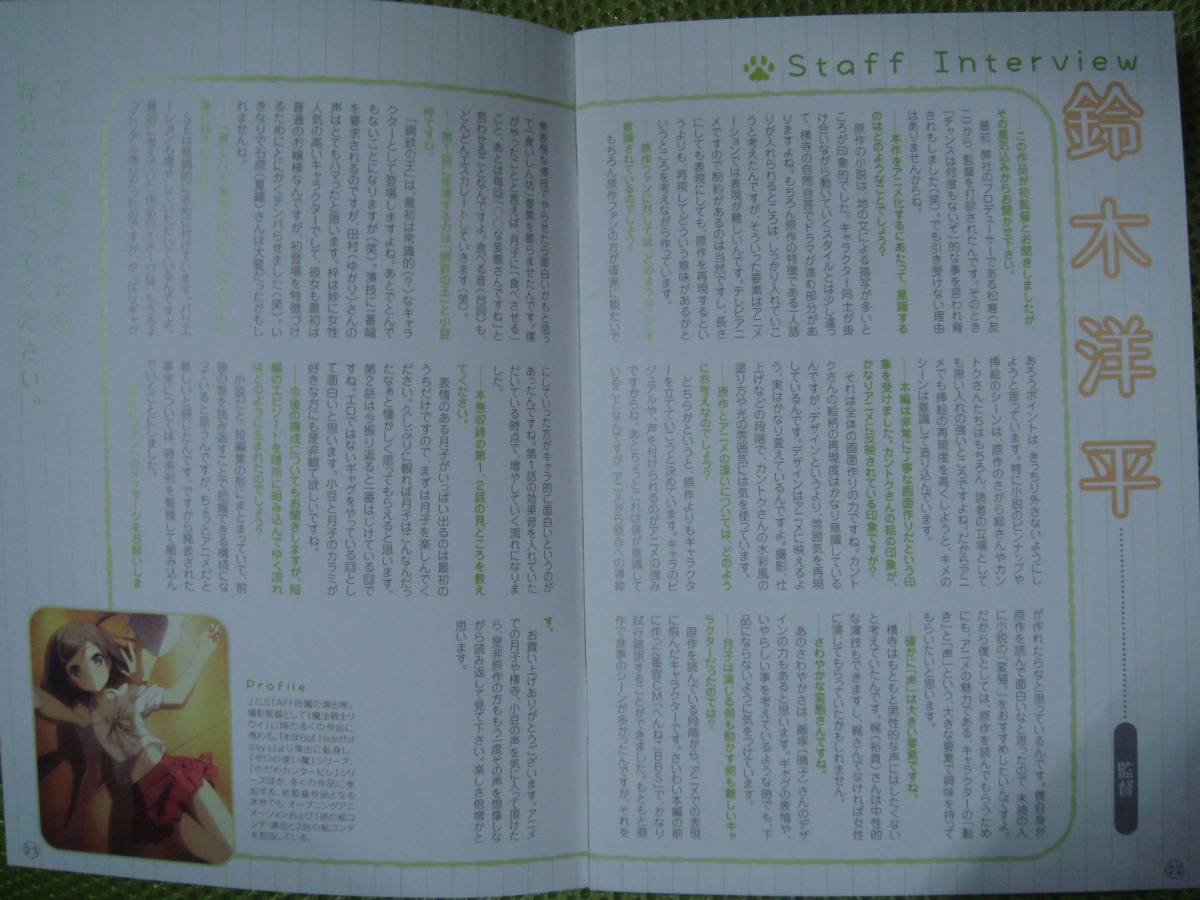 Staff Interview
鈴木洋平
監督
――この作品が初監督とお聞きしましたが、
その意気込みからお聞かせ下さい。
最初、弊社のプロデューサーである松倉（友
二）から、監督を打診されたんです。そのとき
「チャンスは何度もないぞ」的な事を言われ脅
されもしました（笑）。でも引き受けない理由
はありませんからね。
――本作をアニメ化するにあたって、意識する
のはどのようなことでしょう？
原作の小説は、地の文による描写が多いと
ころが印象的でした。キャラクター同士が掛
け合いながら動いていくスタイルとは少し違っ
て、横寺の自問自答でドラマが進む部分があ
りますよね。もちろん原作の特徴である一人話
りが入れられるところは、しっかり入れていこ
うと考えたんですが、そういった要素はアニメ
ーションでは表現が難しいんです。テレビアニ
メですので制約があるのは当然ですし、長さ
にしても表現にしても、原作を再現するとい
うよりも、再現してどういう意味があるかと
いうところを考えながら作っています。
――原作ファンに対しては、どのようなことを
意識されているのでしょう。
もちろん原作ファンの方が確実に観たいで
あろうポイントは、きっちり外さないようにし
ようと思っています。特に小説のピンナップや
挿絵のシーンは、原作のさがら総さんやカン
トクさんたちはもちろん、読者の立場として
も思い入れの強いところですよね。だからアニ
メでも挿絵の再現度を高くしようと、キメの
シーンは意識して造り込んでいます。
――本編は非常に丁寧な画面作りだという印
象を受けました。カントクさんの絵の印象が、
かなりアニメに反映されている印象ですが？
それは全体の画面作りの力ですね。カント
クさんの絵柄の再現度はかなり意識している
んですが、デザインというより、雰囲気を再現
しているんです。デザインはアニメに映えるよ
う、実はかなり変えているんですよ。撮影、仕
上げなどの段階で、カントクさんの水彩風の
塗り方や光の雰囲気には気を使っています。
――原作とアニメの違いについては、どのよう
にお考えなのでしょう？
どちらかというと、原作よりもキャラクタ
ーを立てていこうと決めています。キャラのビ
ジュアルや、声を付けられるのがアニメの強み
ですからね。あとちょっとこれは僕が意識して
いることなんですが、アニメから原作への導線
が作れたらなと思っているんです。僕自身が
原作を読んで面白いなと思ったので、未読の人
に小説の『変猫。』をおすすめしたいんですよ。
だから僕としては、原作を読んでもらうため
にも、アニメの魅力である、キャラクターの「動
き」と「声」という、大きな要素で興味を持って
もらいたいと思います。
――確かに「声」は大きい要素ですね。
横寺はもともと男性的な声にはしたくない
と考えていたんです。梶（裕貴）さんは中性的
な演技もできますし、梶さんでなければ女性
に演じてもらっていたかもしれません。
――さわやかな変態さんですね。
あのさわやかさは、飯塚（晴子）さんのデザ
インの力もあると思います。ギャグの表情や、
いやらしい事を考えているような時でも、下
品にならないように気をつけています。
――月子は演じる側も動かす側も難しいキャ
ラクターだったのでは？
原作を読んでいる段階から、アニメでの表現
に悩んだキャラクターです。さいわい本編の前
に作った番宣CM「へんねこBBS」で、かなり
試行錯誤することができました。もともと原
作で食事のシーンが多かったんですが、それを
無表情な演技でやらせたら面白いかもと思っ
て「食いしん坊」要素を膨らませたんです。僕
がやったことと言えば、月子に「食べさせる」
こと、あとは毎回「○○な変態さんですね」と
言わせることなんですよ。食べる音（台詞）も、
どんどんエスカレートしていきます（笑）。
――第1話に登場するのは「鋼鉄の王」と小豆
梓ですね。
「鋼鉄の王」は、最初は常識的（？）なキャラ
クターとして登場しますよね。あとでとんで
もないことになりますが（笑）。演技に一番幅
を要求されるのですが、田村（ゆかり）さんの
声はとてもハマったと思います。梓は妙に女性
人気の高いキャラクターでして、彼女も最初は
普通のお嬢様なんですが、初登場を特徴づけ
るためにとにかくテンパらせました（笑）。い
きなりで石原（夏織）さんは大変だったかもし
れませんね。
にしていった方がキャラ的に面白いというのが
あったんですね。第1話の効果音を入れていた
だいている時点で、増やしていく流れになりま
した。
――本巻収録の第1、2話の見どころを教え
てください。
表情のある月子がいっぱい出るのは最初の
うちだけですので、まずは月子を楽しんでく
ださい。久しぶりに観れば月子はこんなんだっ
たなぁと懐かしく思ってもらえると思います。
第2話は今振り返ると一番はじけている回で
すね。エロではないギャグをやっている回とし
て面白いと思います。小豆と月子のカラミが
好きな方にも是非観て欲しいですね。
――今後の構成についてもお聞きしますが、短
編のエピソードを随所に組み込んでゆく流れ
はどのように生まれたのでしょう？
小説だと、短編集の形にまとまっていて、前
後の巻を読み返すことで把握できる構成にな
っていると思うんですが、ちょっとアニメだと
難しいと感じたんです。ですから発表された
事実については、時系列を整理して組み込ん
でいくことにしました。
す。
お買い上げありがとうございます。アニメ
での月子や横寺、小豆の声を気に入って頂けた
ら、是非原作の方ももう一度その声を想像しな
がら読み返して見て下さい。楽しさ倍増かと
思います。
Profile
J.C.STAFF所属の演出家。
撮影監督として『魔法戦士リ
ウイ』以降の多くの作品に
携わる。『まぽらば Heartful
days』より演出に転身し、
『ゼロの使い魔』シリーズ、
『のだめカンタービレ』シリ
ーズほか、多くの作品に参
加する。初監督作品となる
本作でも、オープニングアニ
メーションおよび1話の絵コン
テ・演出と2話の絵コンテ
を担当している。
23
22